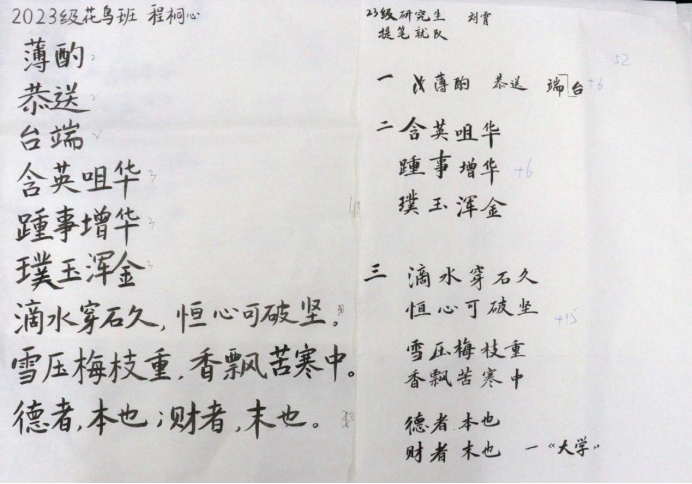 2023级花鸟班 程桐心
薄酌
恭送
台端
含英咀华
踵事增华
璞玉浑金
滴水穿石久，恒心可破坚。
雪压梅枝重，香飘苦寒中。
德者，本也；财者，末也。
23级研究生 刘霄
提笔就队
52
一 薄酌 恭送 端台 +6
二 含英咀华
踵事增华 +6
璞玉浑金
三 滴水穿石久
恒心可破坚 +15
雪压梅枝重
香飘苦寒中
德者 本也
财者 末也 —《大学》